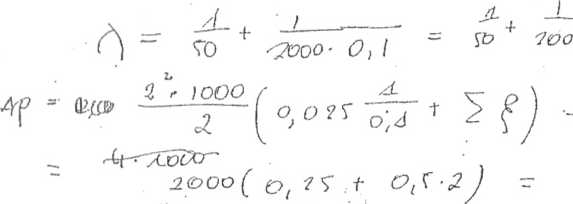 λ = 1/50 + 1/(2000 · 0,1) = 1/50 + 1/200
Δp = (2² · 1000)/2 (0,025 1/0,1 + Σ ξ)
= 2000 (0,25 + 0,5 · 2) =